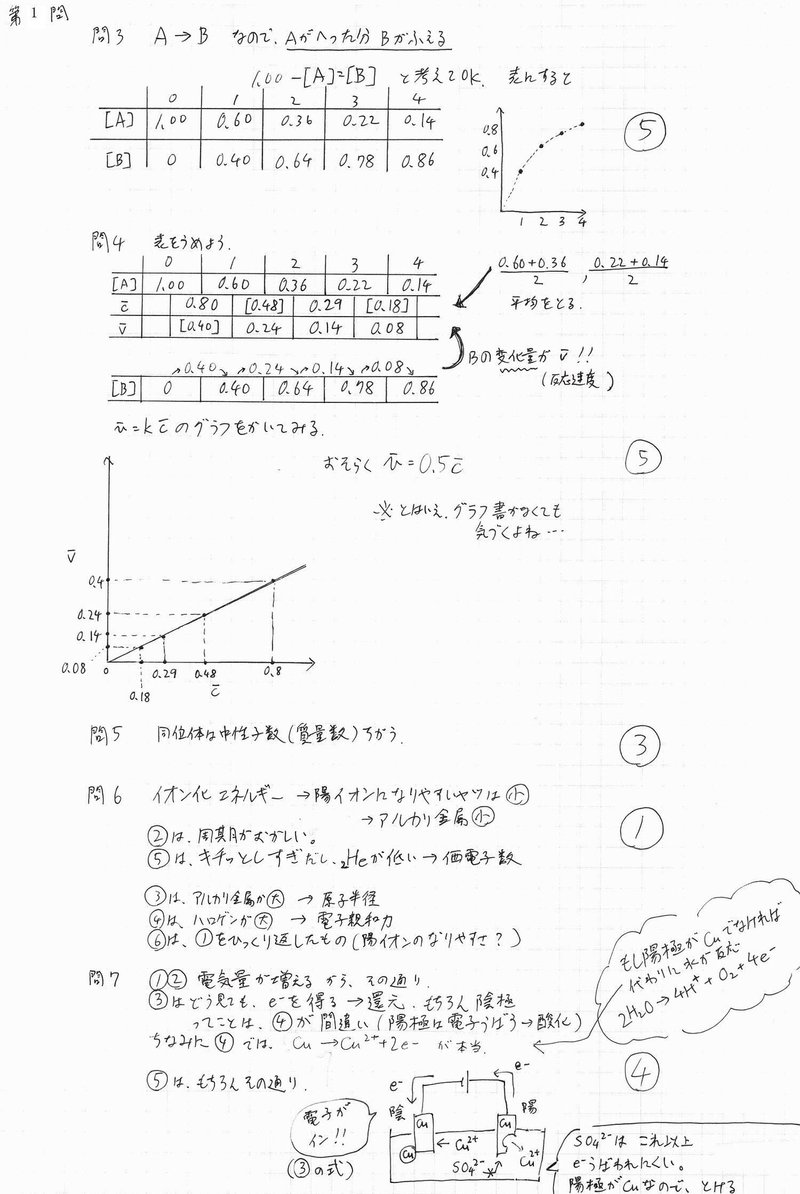 第1問
問3 A→B なので、Aがへった分Bがふえる
1.00-[A]=[B] と考えてOK. 表にすると
0 1 2 3 4
[A] 1.00 0.60 0.36 0.22 0.14
[B] 0 0.40 0.64 0.78 0.86
0.8
0.6
0.4
1 2 3 4
⑤
問4 表をうめよう.
0 1 2 3 4
[A] 1.00 0.60 0.36 0.22 0.14
c̄ 0.80 [0.48] 0.29 [0.18]
v̄ [0.40] 0.24 0.14 0.08
0.60+0.36/2 , 0.22+0.14/2
平均をとる.
Bの変化量が v̄!!
(反応速度)
0.40 0.24 0.14 0.08
[B] 0 0.40 0.64 0.78 0.86
v̄=kc̄のグラフをかいてみる.
おそらく v̄=0.5c̄
⑤
※とはいえ、グラフ書かなくても
気づくよね…
v̄
0.4
0.24
0.14
0.08
0 0.18 0.29 0.48 0.8
c̄
問5 同位体は中性子数(質量数)ちがう.
③
問6 イオン化エネルギー →陽イオンになりやすいヤツは小
→アルカリ金属小
①
②は、周期がおかしい。
⑤は、キチッとしすぎだし、₂Heが低い→価電子数
③は、アルカリ金属が大 → 原子半径
④は、ハロゲンが大 → 電子親和力
⑥は、①をひっくり返したもの(陽イオンのなりやすさ?)
問7 ①② 電気量が増えるから、その通り.
③はどう見ても、e⁻を得る→還元.もちろん陰極
ってことは、④が間違い(陽極は電子うばう→酸化)
ちなみに④では、Cu→Cu²⁺+2e⁻ が本当.
もし陽極がCuでなければ
代わりに水が反応
2H₂O→4H⁺+O₂+4e⁻
④
⑤は、もちろんその通り.
e⁻ e⁻
陰 陽
Cu Cu
Cu ←Cu²⁺ Cu²⁺
SO₄²⁻
電子が
イン!!
(③の式)
SO₄²⁻は これ以上
e⁻うばわれにくい。
陽極がCuなので、とける